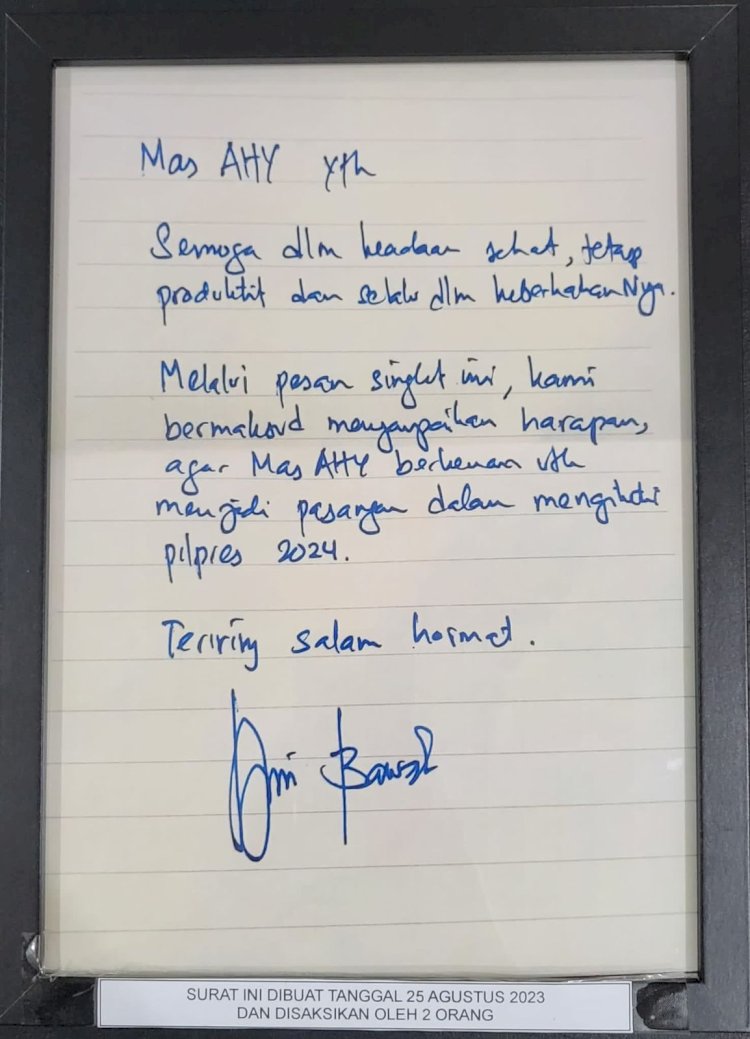 Mas AHY Yth
Semoga dlm keadaan sehat, tetap
produktif dan selalu dlm keberkahanNya.
Melalui pesan singkat ini, kami
bermaksud menyampaikan harapan,
agar Mas AHY berkenan utk
menjadi pasangan dalam mengikuti
pilpres 2024.
Teriring salam hormat.
SURAT INI DIBUAT TANGGAL 25 AGUSTUS 2023
DAN DISAKSIKAN OLEH 2 ORANG